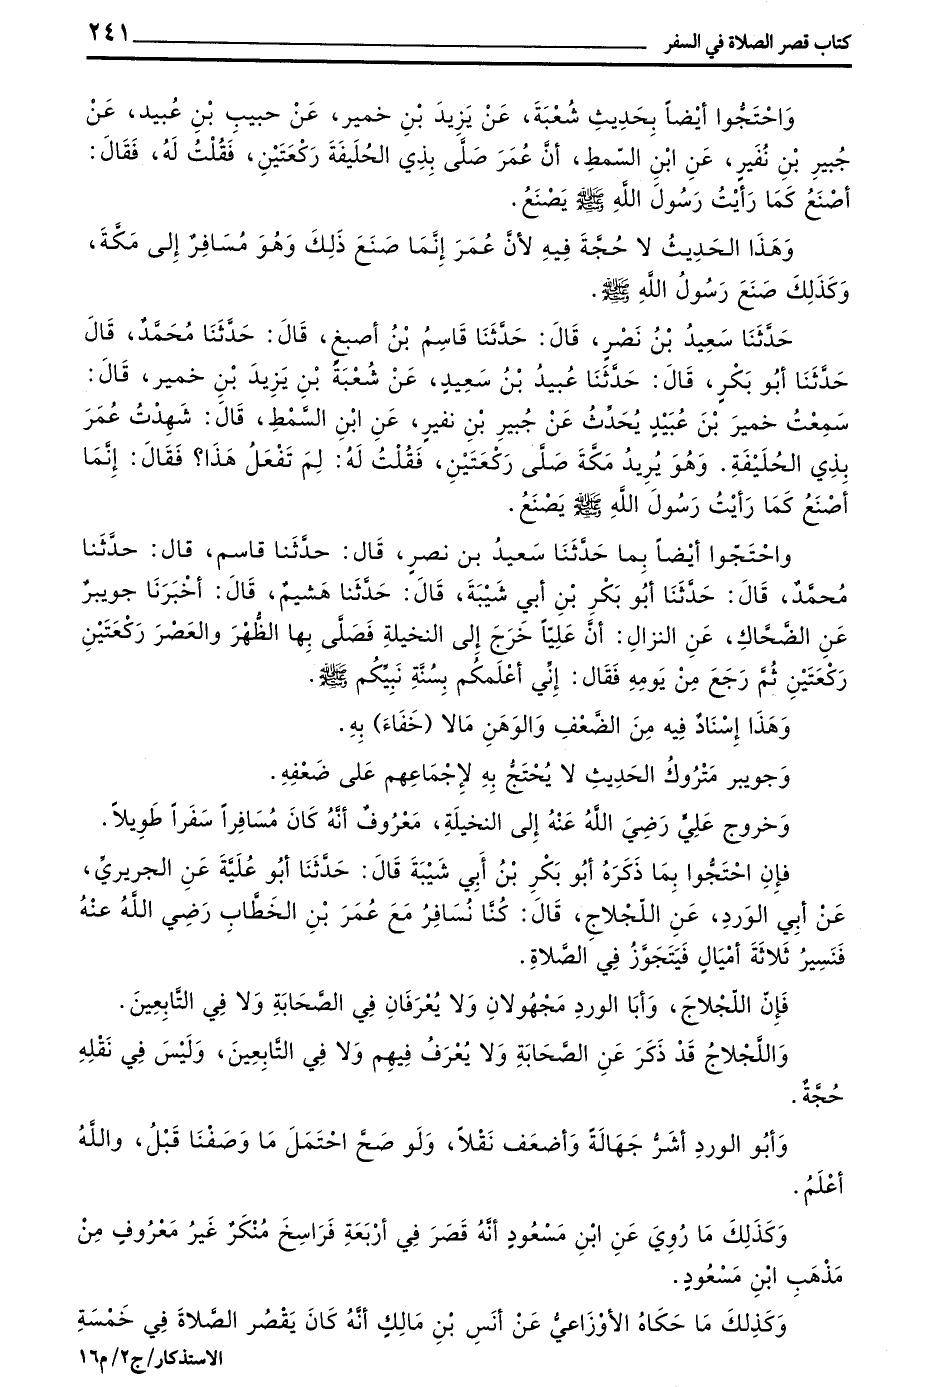 كتاب قصر الصلاة في السفر ٢٤١
وَاحْتَجُّوا أيْضاً بِحَدِيثِ شُعْبَةَ، عَنْ يَزِيدَ بْنِ خمير، عَنْ حبيبِ بْنِ عُبيد، عَنْ
جُبيرِ بْنِ نُفَيرٍ، عَنِ ابْنِ السّمطِ، أنَّ عُمَرَ صَلَّى بِذِي الحُلَيفَةَ رَكْعَتَيْنِ، فَقُلْتُ لَهُ، فَقَالَ:
أصْنَعُ كَمَا رَأيْتُ رَسُولَ اللَّهِ ﷺ يَصْنَعُ.
وَهَذَا الحَدِيثُ لا حُجَّةَ فِيهِ لأنَّ عُمَرَ إِنَّمَا صَنَعَ ذَلِكَ وَهُوَ مُسَافِرٌ إلى مَكَّةَ،
وَكَذَلِكَ صَنَعَ رَسُولُ اللَّهِ ﷺ.
حَدَّثَنَا سَعِيدُ بْنُ نَصْرٍ، قَالَ: حَدَّثَنَا قَاسِمُ بْنُ أصبغ، قَالَ: حَدَّثَنَا مُحَمَّدٌ، قَالَ
حَدَّثَنَا أبُو بَكْرٍ، قَالَ: حَدَّثَنَا عُبيدُ بْنُ سَعِيدٍ، عَنْ شُعْبَةُ بْنِ يَزِيدَ بْنِ خمير، قَالَ:
سَمِعْتُ خميرَ بْنَ عُبَيْدٍ يُحَدِّثُ عَنْ جُبيرِ بْنِ نفيرٍ، عَنِ ابْنِ السَّمْطِ، قَالَ: شَهِدْتُ عُمَرَ
بِذِي الحُلَيْفَةِ. وَهُوَ يُرِيدُ مَكَّةَ صَلَّى رَكْعَتَيْنِ، فَقُلْتُ لَهُ: لِمَ تَفْعَلُ هَذَا؟ فَقَالَ: إِنَّمَا
أصْنَعُ كَمَا رَأيْتُ رَسُولَ اللَّهِ ﷺ يَصْنَعُ.
واحْتَجّوا أيْضاً بِما حَدَّثَنَا سَعيدُ بن نصرٍ، قَال: حدَّثَنا قاسم، قال: حدَّثَنا
مُحمَّدٌ، قَالَ: حَدَّثَنَا أبُو بَكْرِ بْنِ أبي شَيْبَةَ، قَالَ: حَدَّثَنا هَشيمٌ، قَالَ: أخْبَرَنَا جويبرٌ
عَنِ الضَّحَّاكِ، عَنِ النزالِ: أنَّ عَلِيّاً خَرَجَ إِلى النخيلةِ فَصَلَّى بِها الظُّهْرَ والعَصْرَ رَكْعَتَيْنِ
رَكْعَتَيْنِ ثُمَّ رَجَعَ مِنْ يَومِهِ فَقَال: إِنِّي أعْلَمكُم بِسُنَّةِ نَبِيِّكُم ﷺ.
وَهَذَا إِسْنَادٌ فِيه مِنَ الضَّعْفِ وَالوَهَنِ مَالا (خَفَاءَ) بِهِ.
وَجويبر مَتْرُوكُ الحَدِيثِ لا يُحْتَجُّ بِهِ لإجْمَاعِهِم عَلى ضَعْفِهِ.
وَخروج عَلِيٍّ رَضِيَ اللَّهُ عَنْهُ إلى النخيلَةِ، مَعْرُوفٌ أنَّهُ كَانَ مُسَافِراً سَفَراً طَويلاً.
فإنِ احْتَجُّوا بِمَا ذَكَرَهُ أبُو بَكْرِ بْنُ أَبِي شَيْبَةَ قَالَ: حَدَّثَنَا أبُو عُلَيَّةَ عَنِ الجريريِّ،
عَنْ أبي الوَردِ، عَنِ اللّجْلاجِ، قَالَ: كُنَّا نُسَافِرُ مَعَ عُمَرَ بْنِ الخَطَّابِ رَضِي اللَّهُ عنْهُ
فَنَسِيرُ ثَلاثَةَ أمْيَالٍ فَيَتَجَوَّزُ فِي الصَّلاةِ.
فَإنّ اللّجْلاجَ، وَأبَا الوردِ مَجْهُولانِ وَلا يُعْرَفَانِ فِي الصَّحَابَةِ وَلا فِي التَّابِعِينَ.
وَاللَّجْلاجُ قَدْ ذَكَرَ عَنِ الصَّحَابَةِ وَلا يُعْرَفُ فِيهِم وَلا فِي التَّابِعِينَ، وَلَيْسَ فِي نَقْلِهِ
حُجَّةٌ.
وَأبُو الوردِ أشَرُّ جَهَالَةً وَأضعَف نَقْلاً، وَلَو صَحَّ احْتَمَلَ مَا وَصَفْنَا قَبْلُ، واللَّهُ
أعْلَمُ.
وَكَذَلِكَ مَا رُوِيَ عَنِ ابْنِ مَسْعُودٍ أنَّهُ قَصَرَ فِي أرْبَعَةِ فَرَاسِخَ مُنْكَرٌ غَيرُ مَعْرُوفٍ مِنْ
مَذْهَبِ ابْنِ مَسْعُودٍ.
وَكَذلِكَ مَا حَكَاهُ الأوْزَاعيُّ عَنْ أنَسِ بْنِ مَالِكٍ أنَّهُ كَانَ يَقْصُر الصَّلاةَ فِي خَمْسَةِ
الاستذكار/ج٢/م١٦